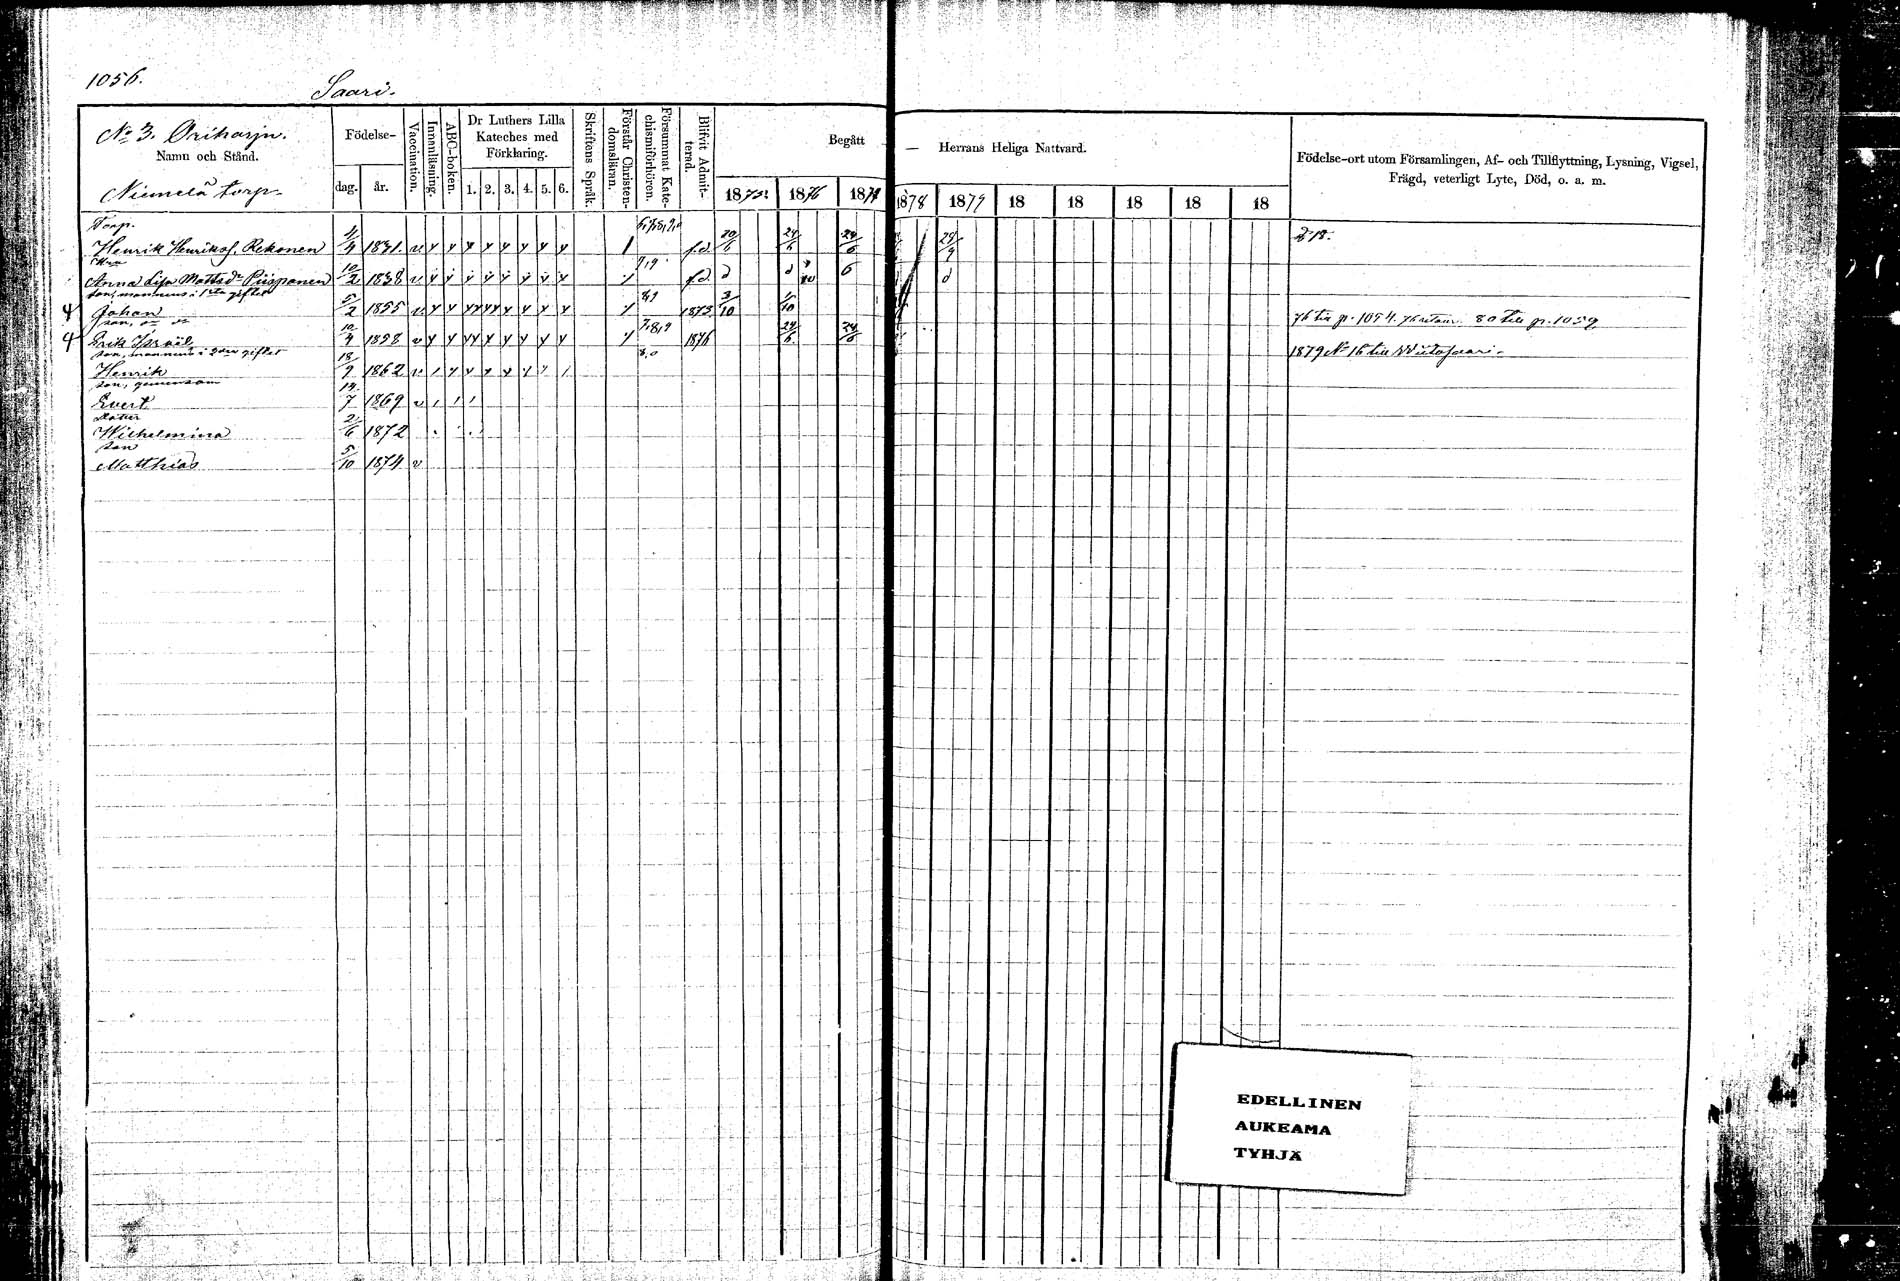 1056.
Saari.
No 3. Oriharju.
Namn och Stånd.
Niemelä torp.
Födelse-
dag.
år.
Vaccination.
Innanläsning.
ABC-boken.
Dr Luthers Lilla
Kateches med
Förklaring.
1. 2. 3. 4. 5. 6.
Skriftens Språk.
Förstår Christen-
domsläran.
Försummat Kate-
chismiförhören.
Blifvit Admit-
terad.
Begått — Herrans Heliga Nattvard.
1875 1876 1877 1878 1879 18 18 18 18 18
Födelse-ort utom Församlingen, Af- och Tillflyttning, Lysning, Vigsel,
Frägd, veterligt Lyte, Död, o. a. m.
Torp.
Henrik Henrikss. Rekonen 1/4 1831 v y y y y y y y y f.d. 20/6 24/6 24/6 28/9
Anna Lisa Mattsdr Piisponen 10/2 1838 v y y y y y y y y 7,9 f.d. d d 6 d
son, mannens i 1sta giftet
4 Johan 5/2 1855 v y y y y y y y y 8,9 1873 3/10 1/10 76 till p. 1054. 80 till p. 1059
son, do do
4 Erik Israël 10/4 1858 v y y y y y y y y 7,8,9 1876 24/6 24/6 1879 No 16 till Wiitasaari.
son, mannens i 2dra giftet
Henrik 18/9 1862 v
son, gemensam
Evert 14/7 1869 v
dotter
Wilhelmina 2/6 1872
son
Matthias 5/10 1874 v
EDELLINEN
AUKEAMA
TYHJÄ